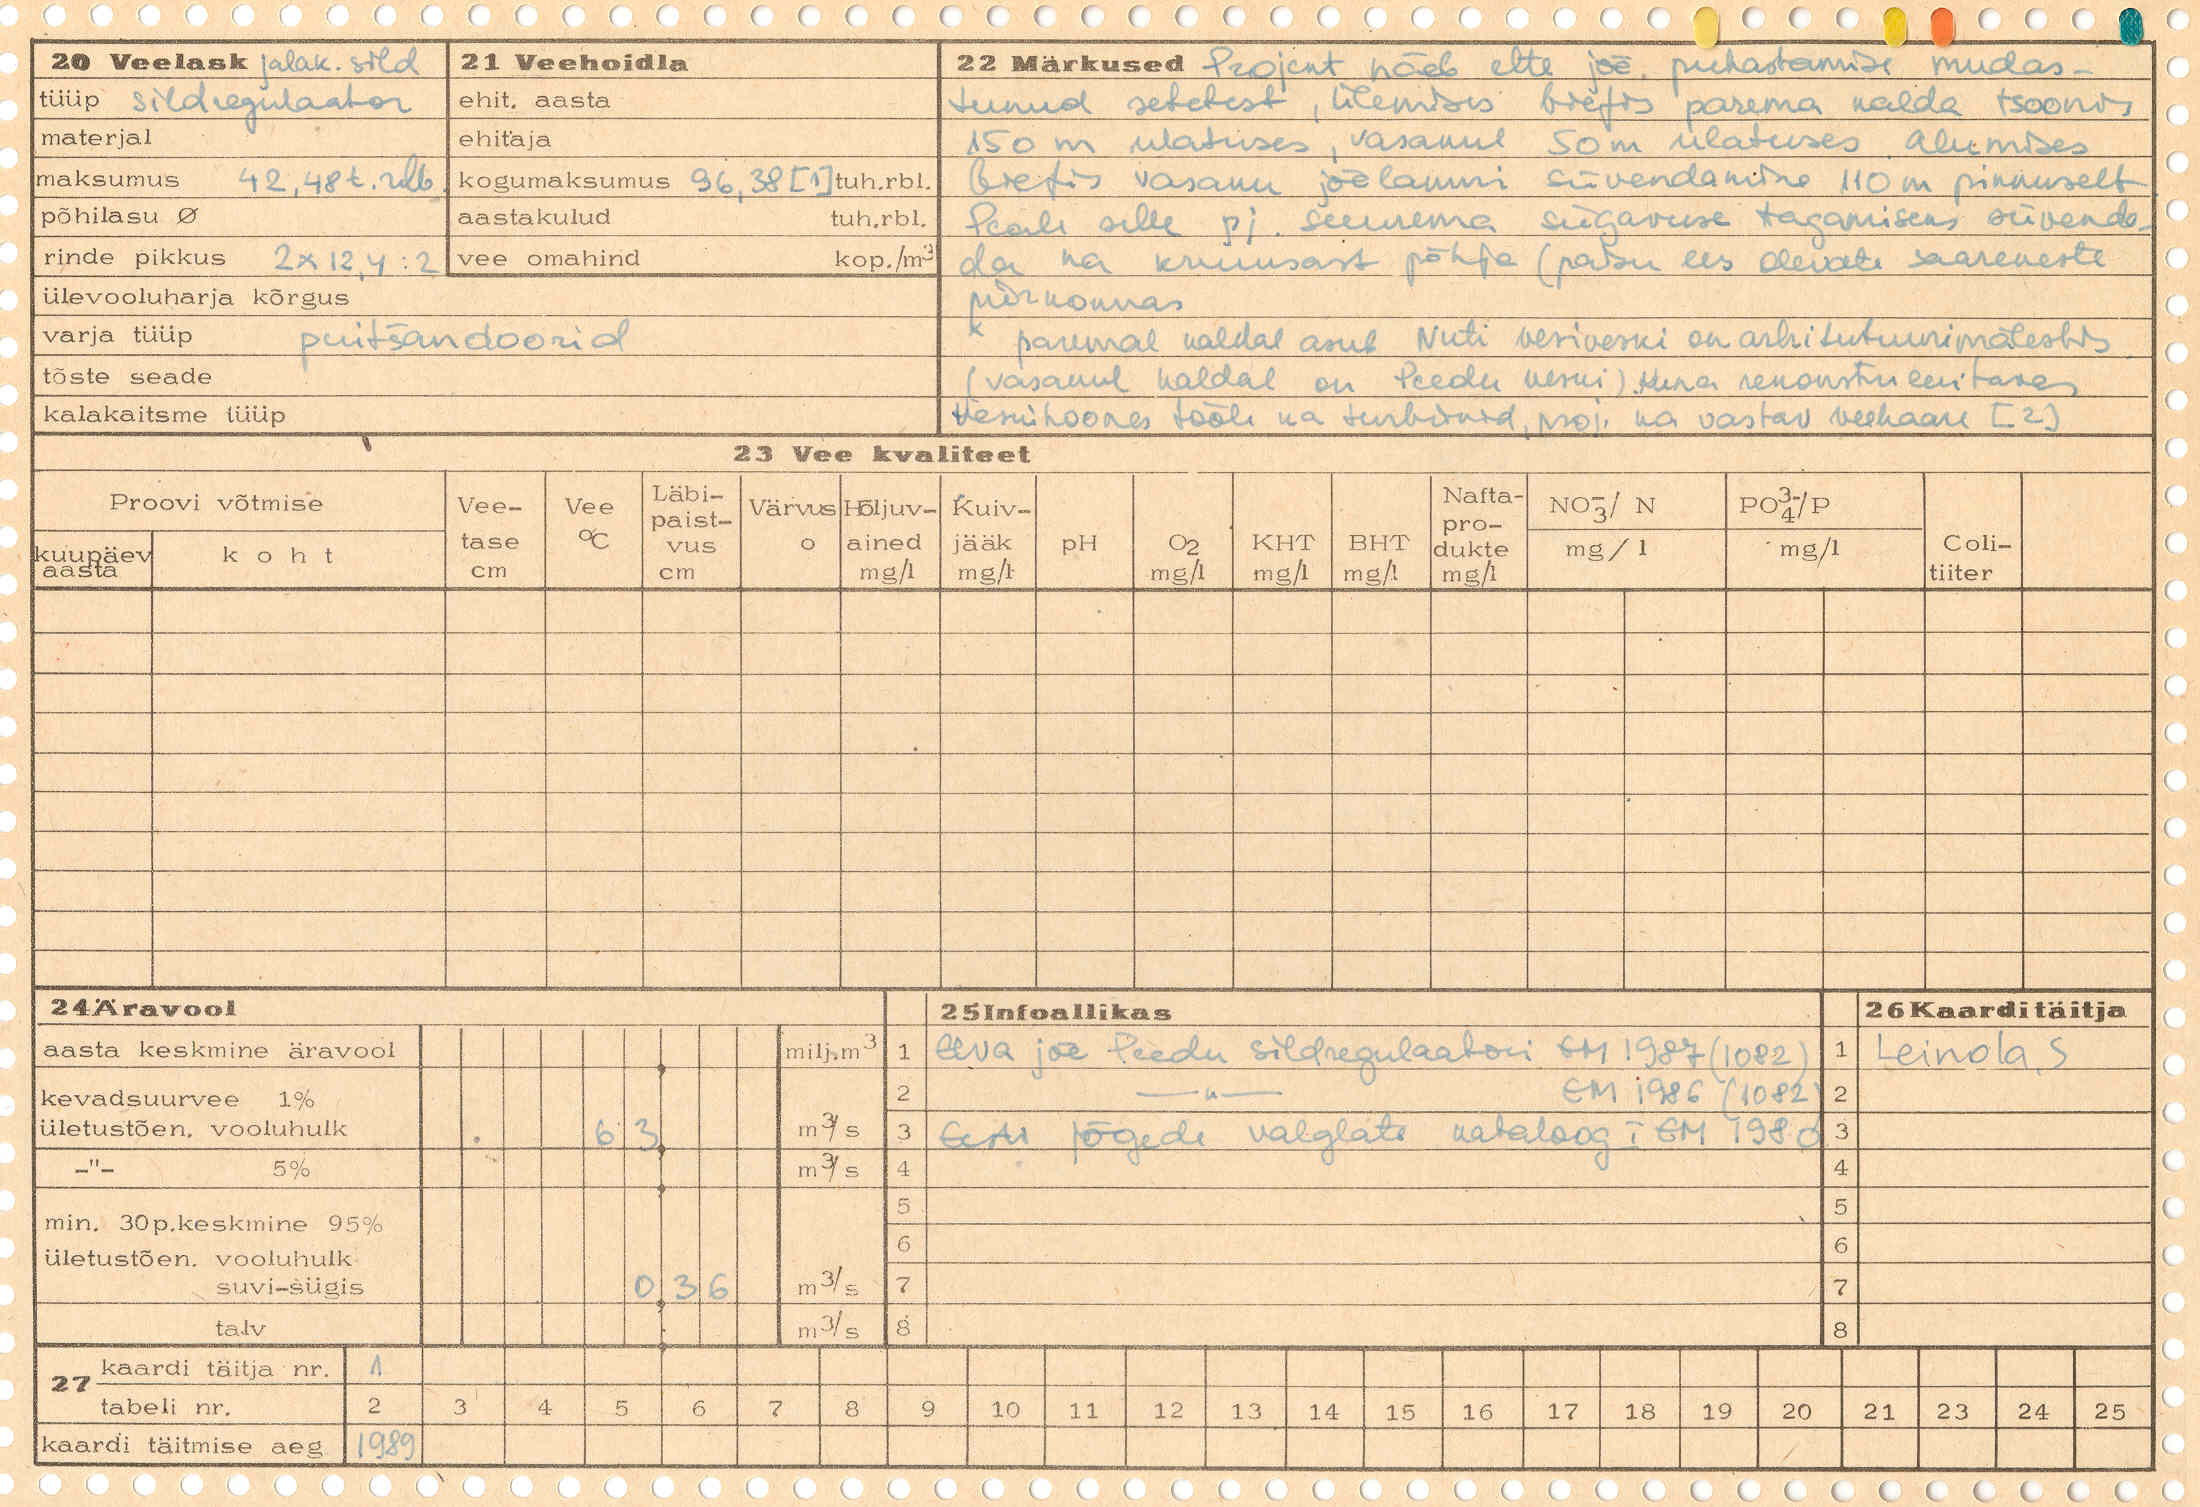 20 Veelask jalak. sild
tüüp sildregulaator
materjal
maksumus 42,48 t. rbl.
põhilasu Ø
rinde pikkus 2x12,4:2
ülevooluharja kõrgus
varja tüüp puitšandoorid
tõste seade
kalakaitsme tüüp
21 Veehoidla
ehit. aasta
ehitaja
kogumaksumus 96,38 [1] tuh.rbl.
aastakulud tuh.rbl.
vee omahind kop./m³
22 Märkused Projekt näeb ette jõe puhastamise mudas-
tunud setetest, ülemises biefis parema kalda tsoonis
150 m ulatuses, vasakul 50 m ulatuses. Alumises
biefis vasaku jõelammi süvendamine 110 m pikkuselt
Peale selle pj. suurema sügavuse tagamiseks süvenda-
da ka kruusast põhja (paisu ees olevate saarekeste
piirkonnas
x paremal kaldal asub Nuti vesiveski on arhitektuurimälestis
(vasakul kaldal on Peedu veski). Kuna rekonstrueeritavas
veskihoones tööle ka turbiinid, proj. ka vastav veehaare [2]
23 Vee kvaliteet
Proovi võtmise
kuupäev aasta
koht
Vee-tase cm
Vee °C
Läbi-paist-vus cm
Värvus o
Hõljuv-ained mg/l
Kuiv-jääk mg/l
pH
O2 mg/l
KHT mg/l
BHT mg/l
Nafta-pro-dukte mg/l
NO₃⁻/ N mg/l
PO₄³⁻/P mg/l
Coli-tiiter
24 Äravool
aasta keskmine äravool milj.m³
kevadsuurvee 1%
ületustõen. vooluhulk 63 m³/s
-"- 5% m³/s
min. 30p.keskmine 95%
ületustõen. vooluhulk
suvi-sügis 0 36 m³/s
talv m³/s
25 Infoallikas
1 Elva jõe Peedu sildregulaatori EM 1987 (1082)
2 —"— EM 1986 (1082)
3 Eesti jõgede valglate kataloog I EM 1980
4
5
6
7
8
26 Kaarditäitja
1 Leinola, S
2
3
4
5
6
7
8
27 kaardi täitja nr. 1
tabeli nr. 2 3 4 5 6 7 8 9 10 11 12 13 14 15 16 17 18 19 20 21 23 24 25
kaardi täitmise aeg 1989